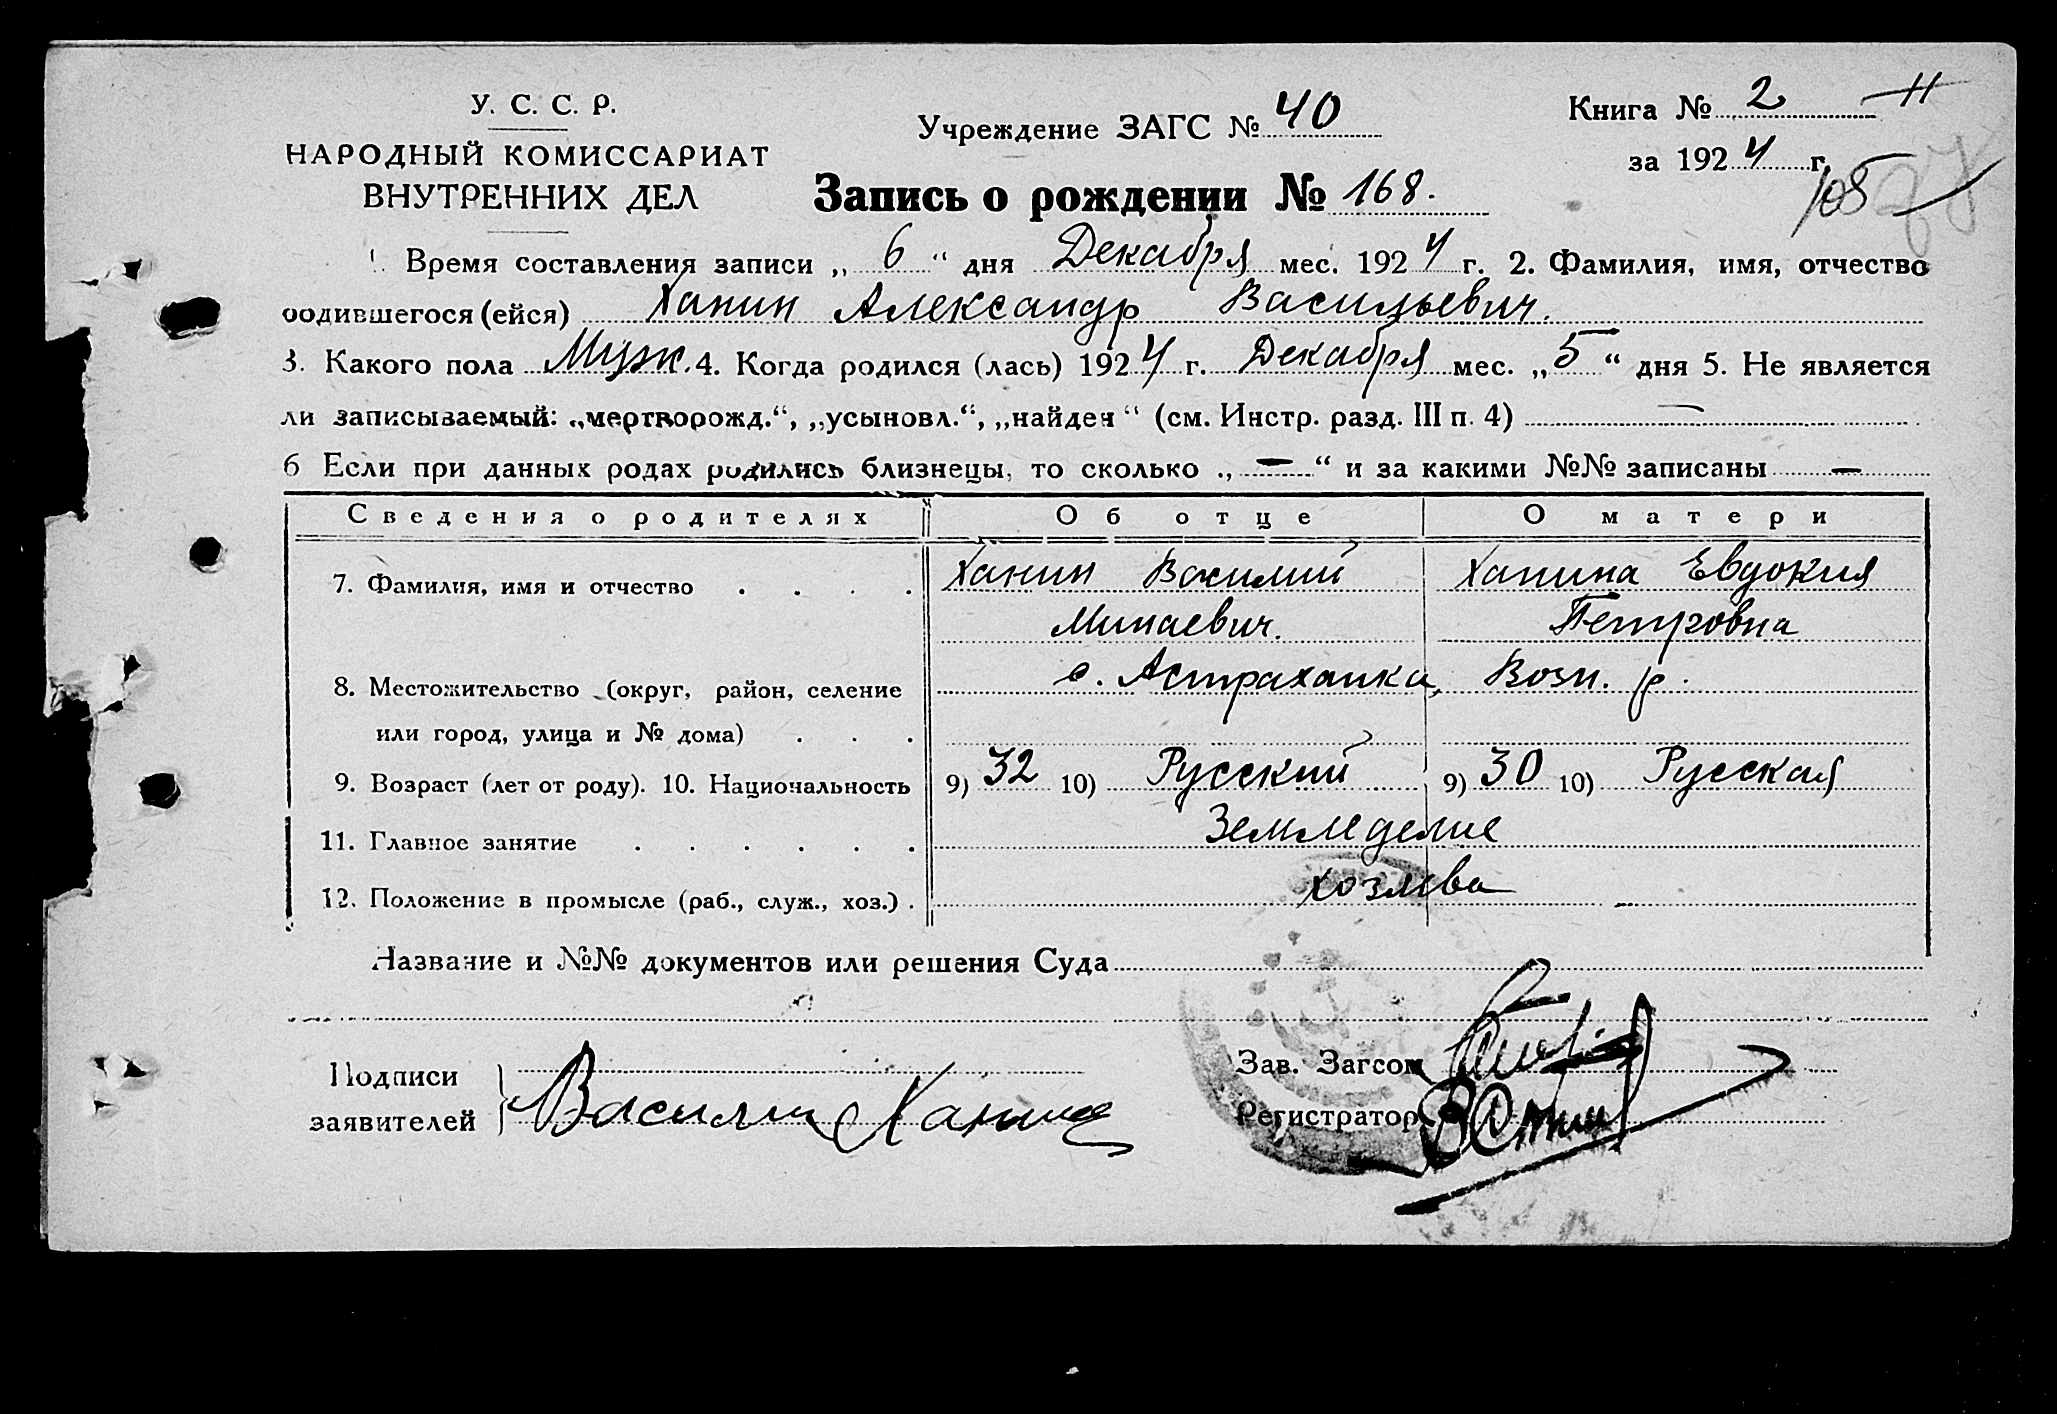 У. С. С. Р.
НАРОДНЫЙ КОМИССАРИАТ
ВНУТРЕННИХ ДЕЛ
Учреждение ЗАГС № 40
Запись о рождении № 168.
Книга № 2 11
за 1924 г.
108
1. Время составления записи „ 6 “ дня Декабря мес. 1924 г. 2. Фамилия, имя, отчество
родившегося (ейся) Ханин Александр Васильевич.
3. Какого пола Муж. 4. Когда родился (лась) 1924 г. Декабря мес. „ 5 “ дня 5. Не является
ли записываемый: „мертворожд.“, „усыновл.“, „найден“ (см. Инстр. разд. III п. 4) —
6 Если при данных родах родились близнецы, то сколько „ — “ и за какими №№ записаны —
Сведения о родителях Об отце О матери
7. Фамилия, имя и отчество . . . . Ханин Василий Ханина Евдокия
Минаевич. Петровна
8. Местожительство (округ, район, селение с. Астраханка, Возн. р.
или город, улица и № дома) . . .
9. Возраст (лет от роду). 10. Национальность 9) 32 10) Русский 9) 30 10) Русская
11. Главное занятие . . . . . . Земледелие
12. Положение в промысле (раб., служ., хоз.) . хозяева
Название и №№ документов или решения Суда
Подписи
заявителей
Василий Ханин
Зав. Загсом
Регистратор